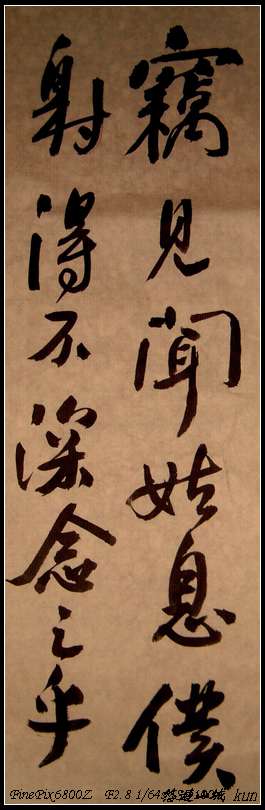 竊見聞姑息僕
射得不深念之乎
FinePix6800Z F2.8 1/64 kun